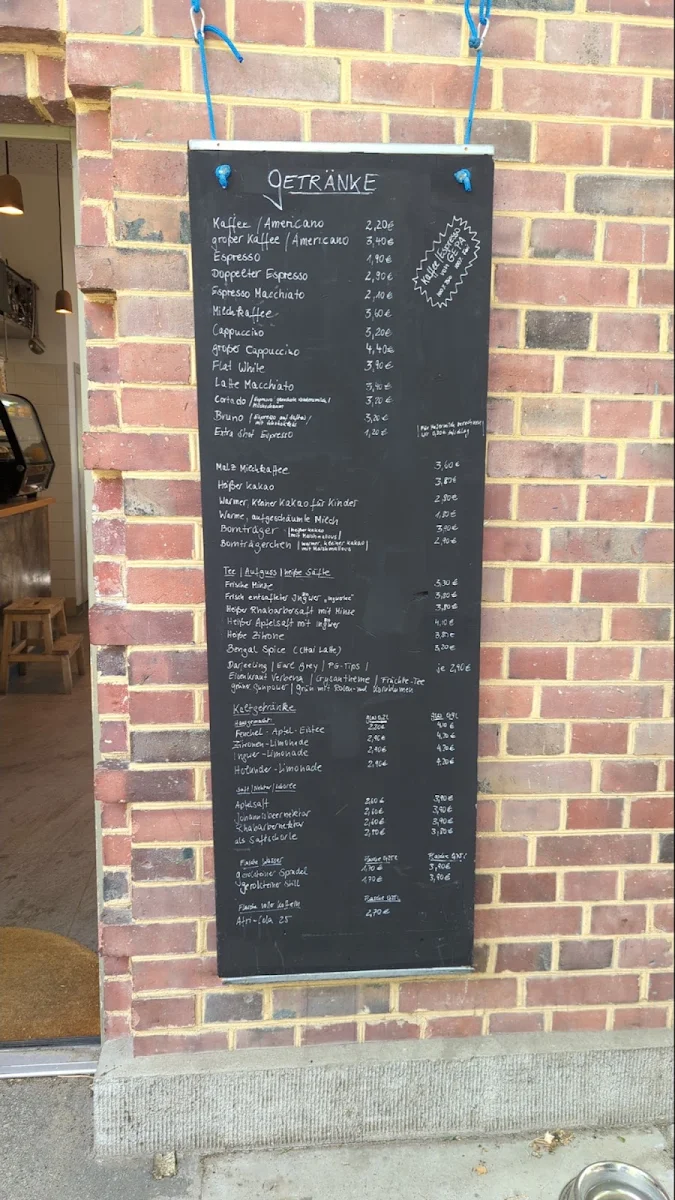 GETRÄNKE
Kaffee / Americano 2,20€
großer Kaffee / Americano 3,40€
Espresso 1,90€
Doppelter Espresso 2,90€
Espresso Macchiato 2,10€
Milchkaffee 3,60€
Cappuccino 3,20€
großer Cappuccino 4,40€
Flat White 3,90€
Latte Macchiato
Cortado
Bruno 3,20€
Extra Shot Espresso 1,20€
Kaffee/Espresso
von GEPA
Malz Milchkaffee 3,60€
Heißer Kakao 3,80€
Warmer, kleiner Kakao für Kinder 2,80€
Warme, aufgeschäumte Milch 1,80€
Bornträger | heißer Kakao mit Marshmallows | 3,90€
Bornträgerchen | warmer, kleiner Kakao mit Marshmallows | 2,90€
Tee | Aufguss | heiße Säfte
Frische Minze 3,30€
Frisch entsafteter Ingwer 3,80€
Heißer Rhabarbersaft mit Minze 3,80€
Heißer Apfelsaft mit Ingwer 4,10€
Heiße Zitrone 3,80€
Bengal Spice (Chai Latte) 3,20€
Darjeeling | Earl Grey | PG-Tips | je 2,90€
Eisenkraut Verbena | Crysantheme | Früchte-Tee
grüner Gunpower | Grün mit Rosen- und Kornblumen
Kaltgetränke
Hausgemacht
Fenchel-Apfel-Eistee
Zitronen-Limonade 2,90€ 4,20€
Ingwer-Limonade 2,90€ 4,20€
Holunder-Limonade 2,90€ 4,20€
Saft | Nektar | Schorle
Apfelsaft 2,60€ 3,90€
Johannisbeernektar 2,60€ 3,90€
Rhabarbernektar 2,60€ 3,90€
als Saftschorle
Flasche Wasser
Gerolsteiner Sprudel 1,70€ 3,90€
Gerolsteiner Still 1,70€ 3,90€
Flasche voller Koffein
Afri-Cola 25 2,70€